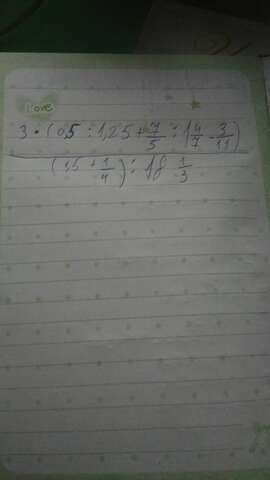 Love
3 · (0,5 : 1,25 + 7/5 : 1 4/7 - 3/11)
(1,5 + 1/4) : 18 1/3